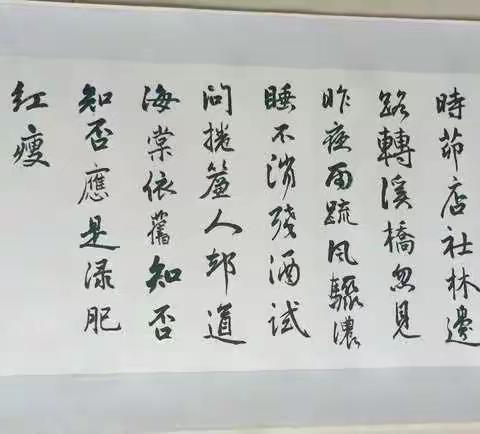 時茆店社林邊
路轉溪橋忽見
昨夜雨疏风驟濃
睡不消殘酒試
问捲簾人却道
海棠依舊知否
知否應是渌肥
红瘦